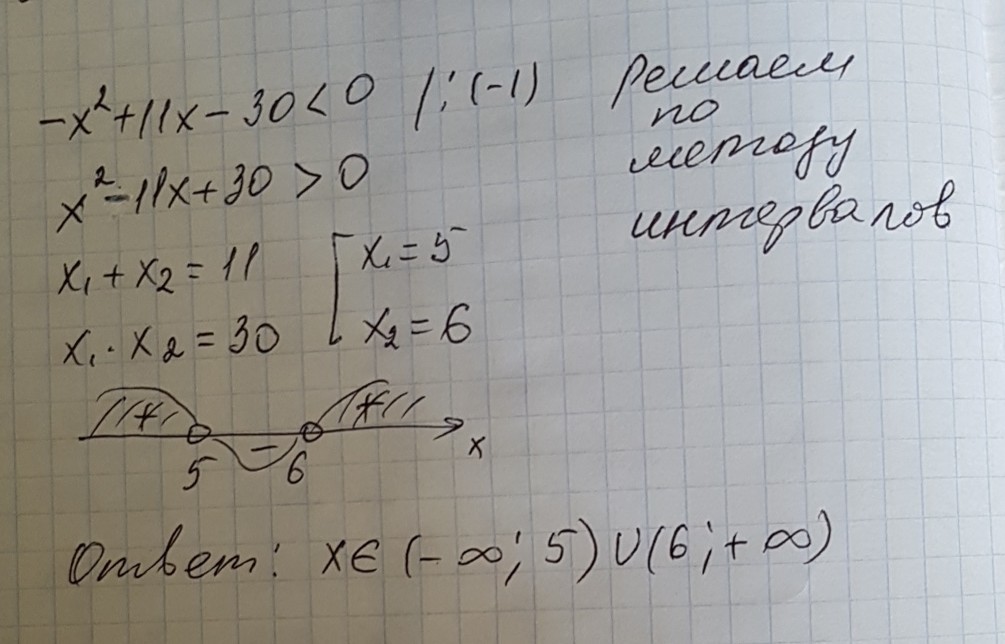 -x²+11x-30<0 /:(-1)
x²-11x+30>0
x₁+x₂=11
x₁·x₂=30
x₁=5
x₂=6
Решаем
по
методу
интервалов
+ - +
5 6 x
Ответ: x∈(-∞;5)∪(6;+∞)